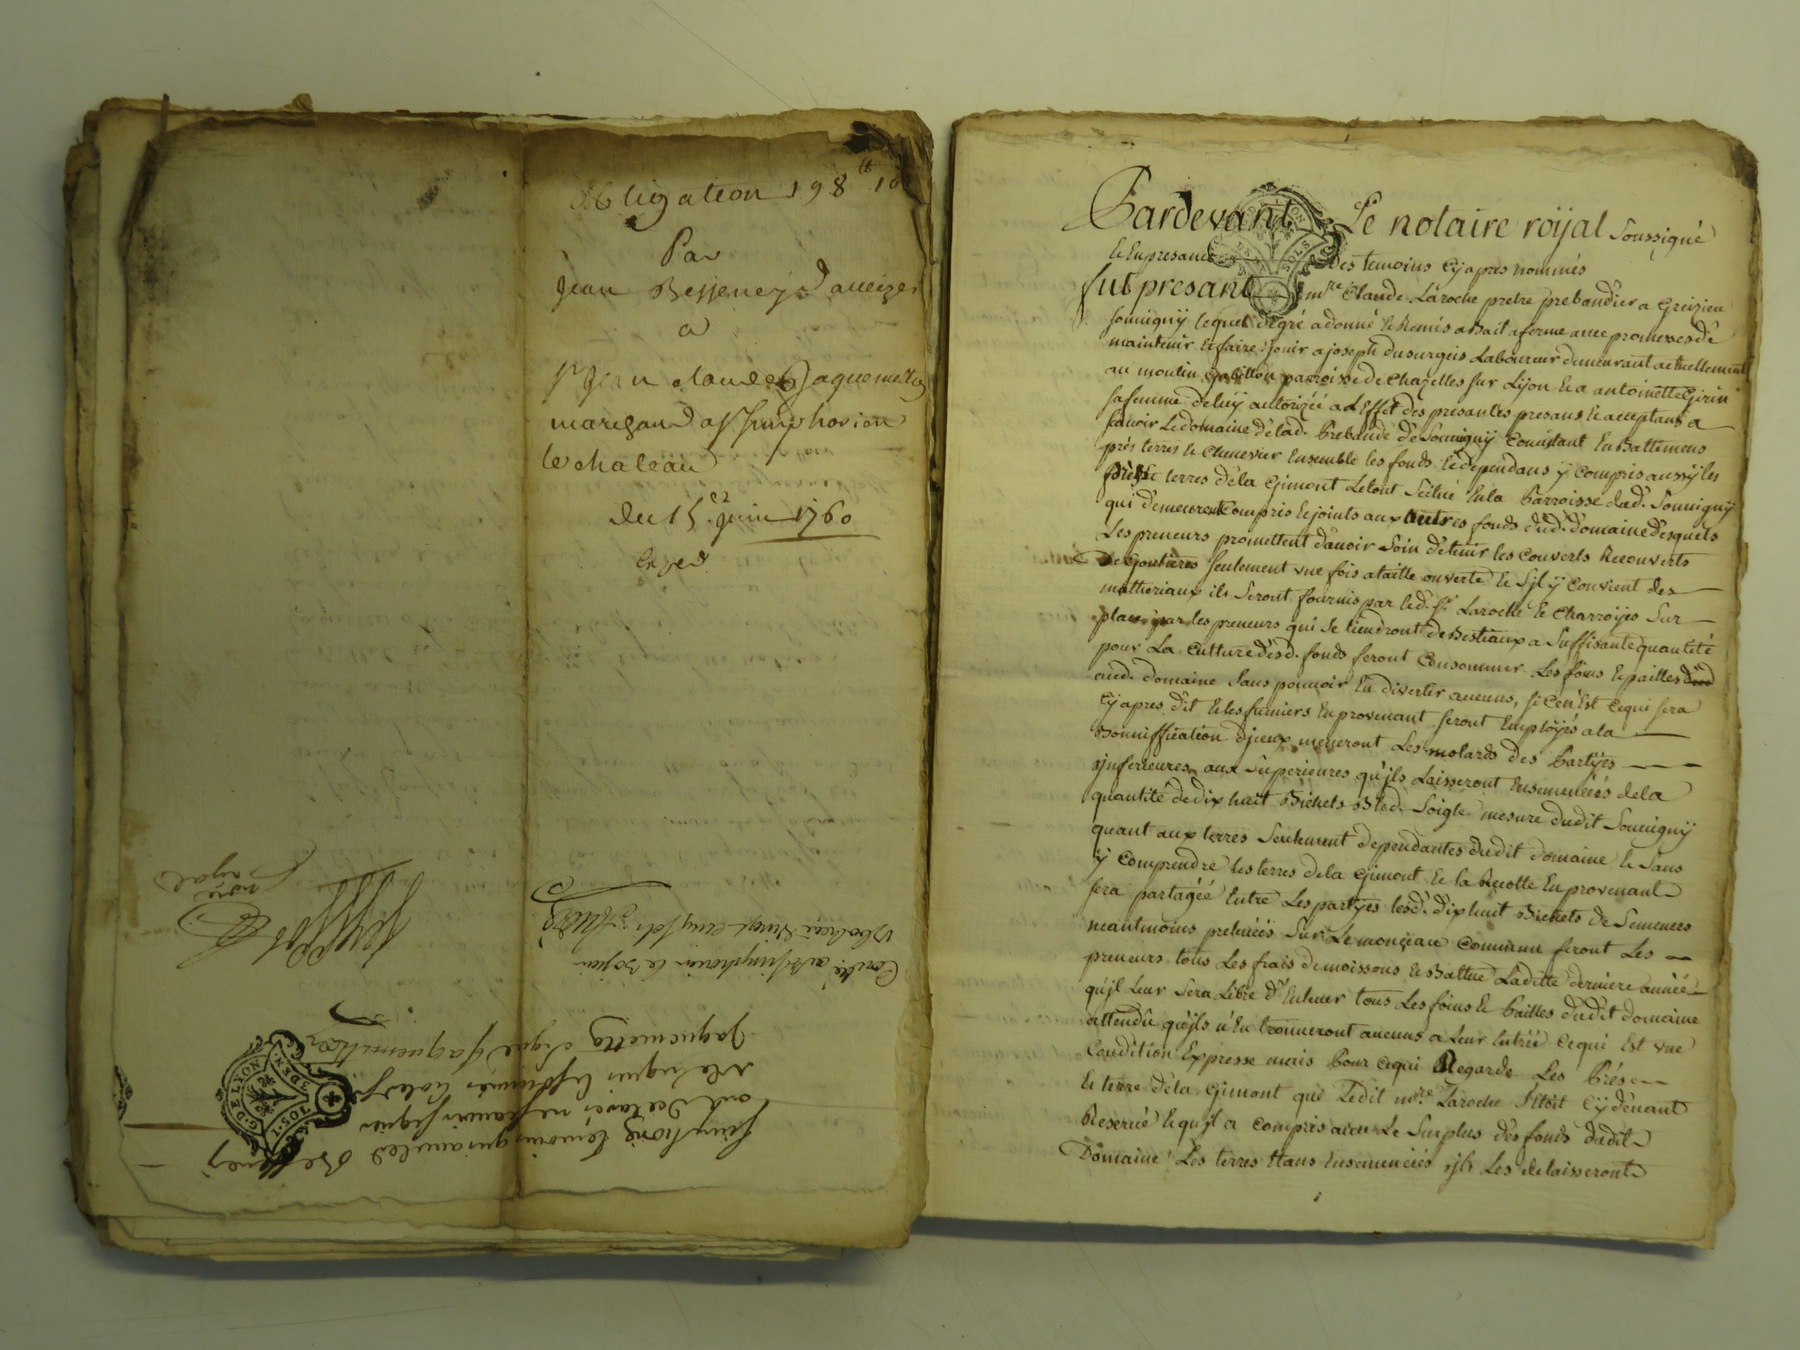 Obligation 198 ₶ 10
Par
Jean Besseney d'aveizes
a
Sr Jean claude Jaquemetton
marchand a St Simphorien
le chateau
du 15e Juin 1760
Simphorien temoins qui avec led Besseney
ont declarés ne scavoir signer
de ce requis
Jaquemetton signé
Con.lé a St Simphorien le 29 juin
Royal
G. DE LYON
DEN.
SOL
Pardevant Le notaire roÿal Soussigné
Et En presance des temoins Cÿ apres nommés
fut presant mre Claude Laroche pretre prebandier a Grezieu
Souvignÿ lequel de gré a donné Et Remis a Bail a ferme avec promesses dé
maintenir Et faire joüir a joseph dusurgeis Laboureur demeurant actuellement
au moulin parroisse de Chazelles sur Lÿon Et a antoinette Girin
sa femme de luÿ authorizéé a L'Effet des présantes presans Et acceptans a
scavoir Le domaine dé lad. Prebande dé Souvignÿ Consistant En Battimens
prés terres Et Chenevier Ensemble les fonds Et dependans ÿ compris aussÿ les
prés Et terres dé la Gimont Le tout Scitué En la Parroisse dud. Souvignÿ
qui demeurent Compris Et joints aux autres fonds dud. domaine desquels
Les preneurs promettent d'avoir Soin dé tenir les Couverts Recouverts
Et Goutieres seulement une fois a taille ouverte Et S'jl ÿ Convient des
matheriaux ils Seront fournis par led. Sr Laroche Et Charroÿes Sur
place par les preneurs qui se tiendront de Bestiaux a Suffisante quantité
pour La Culture desd. fonds feront Consommer Les foins Et pailles dud
aud. domaine Sans pouvoir En divertir aucuns, si Cen'Est Ce qui sera
Cÿ apres dit Et les fumiers En provenant seront Emploÿés a la
Bonniffication d'jceux meneront Les motards des Partÿes
jnferieures aux Superieures qu'jls Laisseront Ensemencéés de la
quantité de dix huit Bichets Bled Soigle mesure dudit Souvignÿ
quant aux terres Seulement dependantes dudit domaine Et Sans
ÿ Comprendre les terres de la Gimont Et la Recolte En provenant
sera partagéé Entre Les partÿes lesd. dix huit Bichets de Semences
neantmoins prelevéés Sur Le monceau Commun feront Les
preneurs tous Les frais de moissons Et Battue Laditte derniere annéé
qu'jl Leur sera Libre d'Enlever tous Les foins Et Pailles dudit domaine
attendû qu'jls n'En trouveront aucuns a Leur Entréé Ce qui Est une
Condition Expresse mais Pour Ce qui Regarde Les Prés
Et terre dé la Gimont que Ledit mre Laroche S'étoit Cÿ dévant
Reservé Et qu'jl a compris avec Le Surplus des fonds dudit
Domaine Les terres Etans Ensemencéés jls Les delaisseront